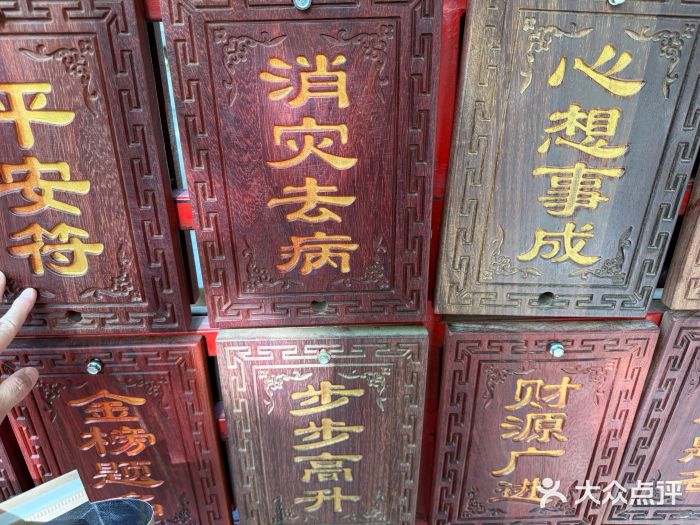 平安符
消灾去病
心想事成
金榜题
步步高升
财源广进
大众点评